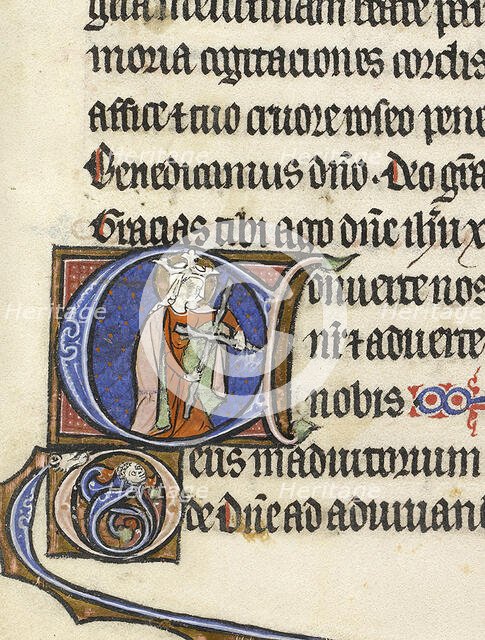 beate
moria cogitaciones cordis
affice ⁊ tuo cruore roseo pene
Benedicamus dño. Deo grã
Gracias tibi ago dñe ihũ x
Conuerte nos
nr̃ ⁊ aduerte
nobis.
Deus in adiutorium
de Dñe ad adiuuand
Heritage
Heritage
Heritage
Heritage
Heritage
Heritage
Heritage